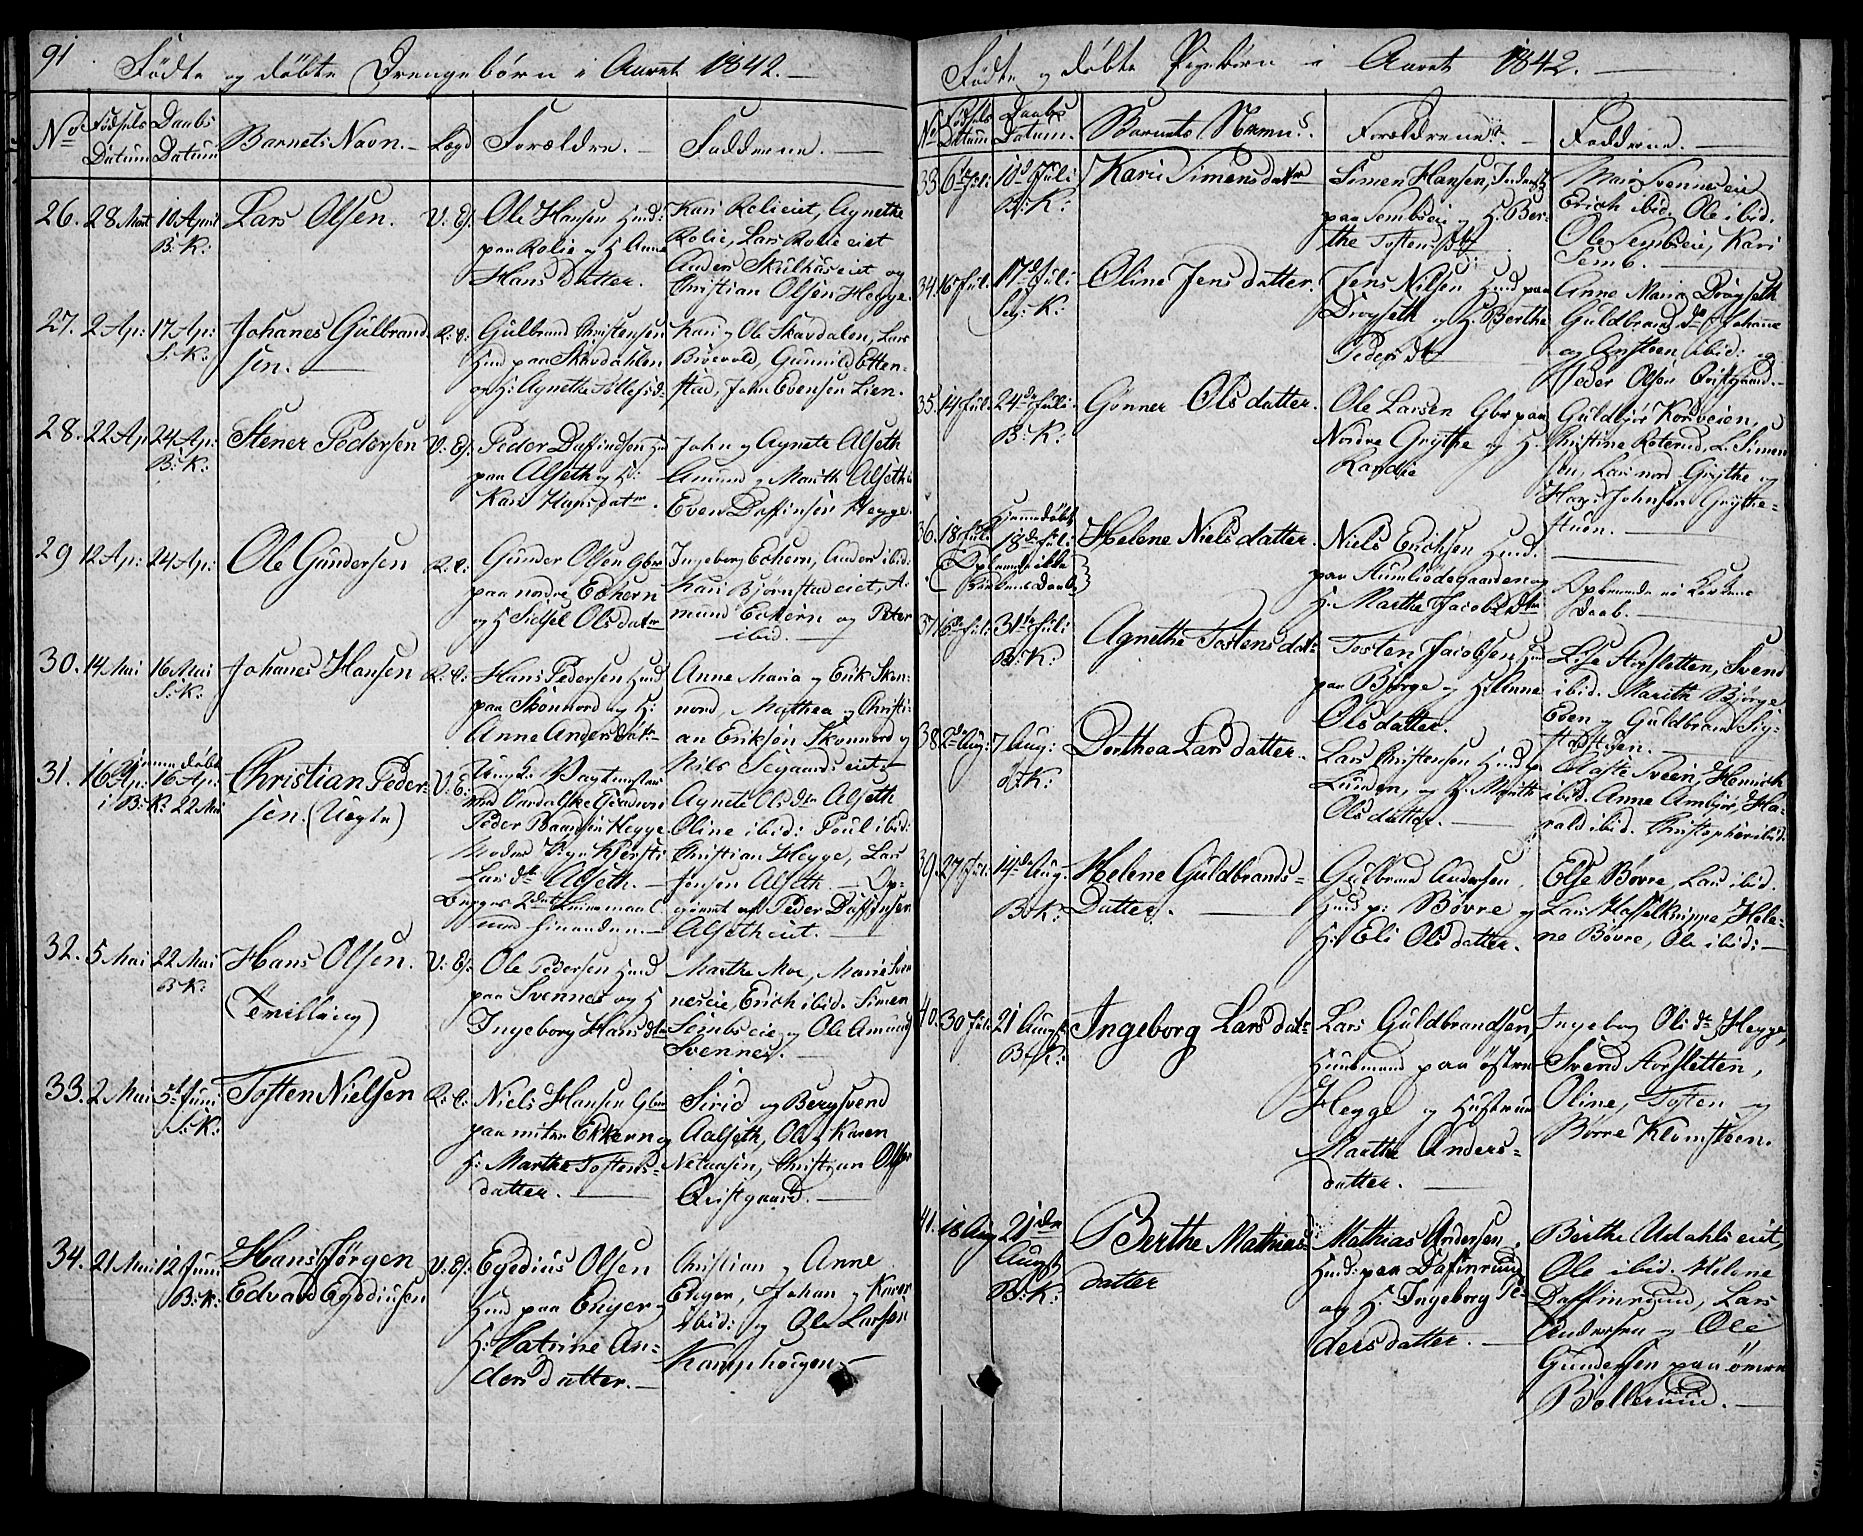 91
Fødte og døbte Drengebørn i Aaret 1842.
No
Fødsels Datum
Daabs Datum
Barnets Navn.
Lægd
Forældre.
Fadderne.
26. 28 Mart 10 April
B: K:
Lars Olsen.
V: Es:
Ole Hansen Huusd:
paa Rolie og H Anne
Hans datter.
Kari Rolieeiet, Agnethe
Rolie, Lars Rolieeiet
Anders Skulhuseiet og
Christian Olsen Hegge.
27. 2 Ap: 17 Ap:
S: K:
Johanes Gulbrand
sen.
Gulbrand Christensen
Husd paa Skavdahlen
og H: Agnethe Tollefsd:
Kari og Ole Skavdalen, Lars
Bøevold, Gunnild Etten-
stad, John Evensen Lien.
28. 22 Ap 24 Ap:
B: K:
Stener Pedersen
V: Es:
Peder Dafindsen
paa Alseth og H:
Kari Hansdatr.
John og Agnete Alseth
Amund og Marith Alseth
Even Daffinsen Hegge.
29 12 Ap: 24 Ap:
Ole Gundersen
Gunder Olsen Gbr
paa nordre Eckern
og H Sidsel Olsdatr
Ingeborg Eckern, Anders ibid:
Kari Bjørnstadeiet, A-
mund Eckern og Peter
ibid.
30. 14 Mai 16 Mai
S: K:
Johanes Hansen
Hans Pedersen Husd
paa Skonnord og H:
Anne Anders Datr
Anne Maria og Erik Skon-
nord, Mathea og Christi-
an Eriksen Skonnord og
Nils Segaardseiet
31. 16 Ap: hjemmedøbt 16 Ap:
i B: K: 22 Mai
Christian Peder-
sen. (Uægte)
Peder Hegge.
Lars dr Alseth.
Agnete Ols dr Alseth
Oline ibid: Poul ibid:
Christian Hegge, Lars
Jensen Alseth.
Peder Daffinsen
Alsetheiet.
32. 5 Mai 22 Mai
B: K:
Hans Olsen.
(Tvilling)
V: Es:
Ole Pedersen Husd
paa Svennes og H
Ingeborg Hans dtr
Marthe Moe, Marie Sven
neseie, Erich ibid. Simen
Sembseie og Ole Amunds
Svennes.
33. 2 Mai 5te Juni
S: K:
Tosten Nielsen
Niels Hansen Gbr
paa mitre Ekkern og
H: Marthe Tostens-
datter.
Sirid og Bergsvend
Aalseth, Ole og Karen
Christian Olsen
Qvistgaard.
34. 21 Mai 12 Juni
B: K:
Hans Jørgen
Edvard Egediusen
V: Es:
Egedius Olsen
Husd paa Enger og
H: Catrine An-
ders datter.
Christian og Anne
Enger, Johan og Karen
ibid: og Ole Larsen
Kamphougen
Fødte og døbte Pigebørn i Aaret 1842.
No
Fødsels Datum
Daabs Datum.
Barnets Navn.
Forældrene.
Fadderne.
33 6te Juli 10de Juli
B: K:
Kari Simensdatr
Simen Hansen, Inderst
paa Sembseie og H. Ber-
the Tostensdtr
Mari Svenneseie
Erich ibid. Ole ibid.
Ole Sembseie, Kari
Semb.
34. 16 Jul: 17de Juli
K:
Oline Jens datter.
Jens Nilsen Husd paa
Drogseth og H. Berthe
Peders dtr
Anne Maria Drogseth
Guldbrand ibid, Johanne
og Ansteen ibid: og
Peder Olsen Qvistgaard.
35. 14 Jul: 24de Juli
B: K:
Gonner Ols datter.
Ole Larsen Gbr paa
Nordre Grythe og H.
Randie
Guldbjør Kordveien,
Christine Roterud, L. Simen
sen, Lars nord Grythe og
Hans Johnsen Grythe-
stuen.
36. 18 Juli Hjemmedøbt
18de Juli
Helene Niels datter.
Niels Erichsen Husd.
paa Stumliødegaarden og
H. Marthe Jacobs Dtr
Daab.
37. 16de Juli 31te Juli
B: K:
Agnethe Tostensdatr
Tosten Jacobsen Husd
paa Bjørge og H Anne
Olsdatter.
Lise Storsletten, Svend
ibid. Marith Bjørge
Even og Guldbrand
38. 2de Aug: 7 Aug:
K:
Dorthea Lars datter.
Lars Christensen Husd p
Lunden, og H. Marith
Olsdatter.
Sveen, Henrich
ibid. Anne Ambjør, Ha-
rald ibid. Christopher ibid.
39. 27 Jul: 14de Aug.
B: K:
Helene Guldbrands-
Datter.
Gulbrand Andersen
Husd p: Bøvre og
H: Eli Ols datter.
Else Bøvre, Lars ibid.
Lars Hasselknippe, Hele-
ne Bøvre, Ole ibid:
40. 30 Juli 21 Augst
B: K:
Ingeborg Lars datr
Lars Guldbrandsen,
Huusmand paa østre
Hegge og Hustrue
Marthe Anders-
datter.
Ingeborg Ols dr Hegge,
Svend Storsletten,
Oline, Tosten og
Børre Klomsteen.
41. 18 Aug 21de
Augst
B: K:
Berthe Mathias
datter
Mathias Andersen
Husd: paa Dafinrud
og H. Ingeborg Pe-
dersdatter.
Berthe Udahlseiet,
Ole ibid. Helene
Daffinruud, Lars
Andersen og Ole
Gundersen paa
Bollerud.